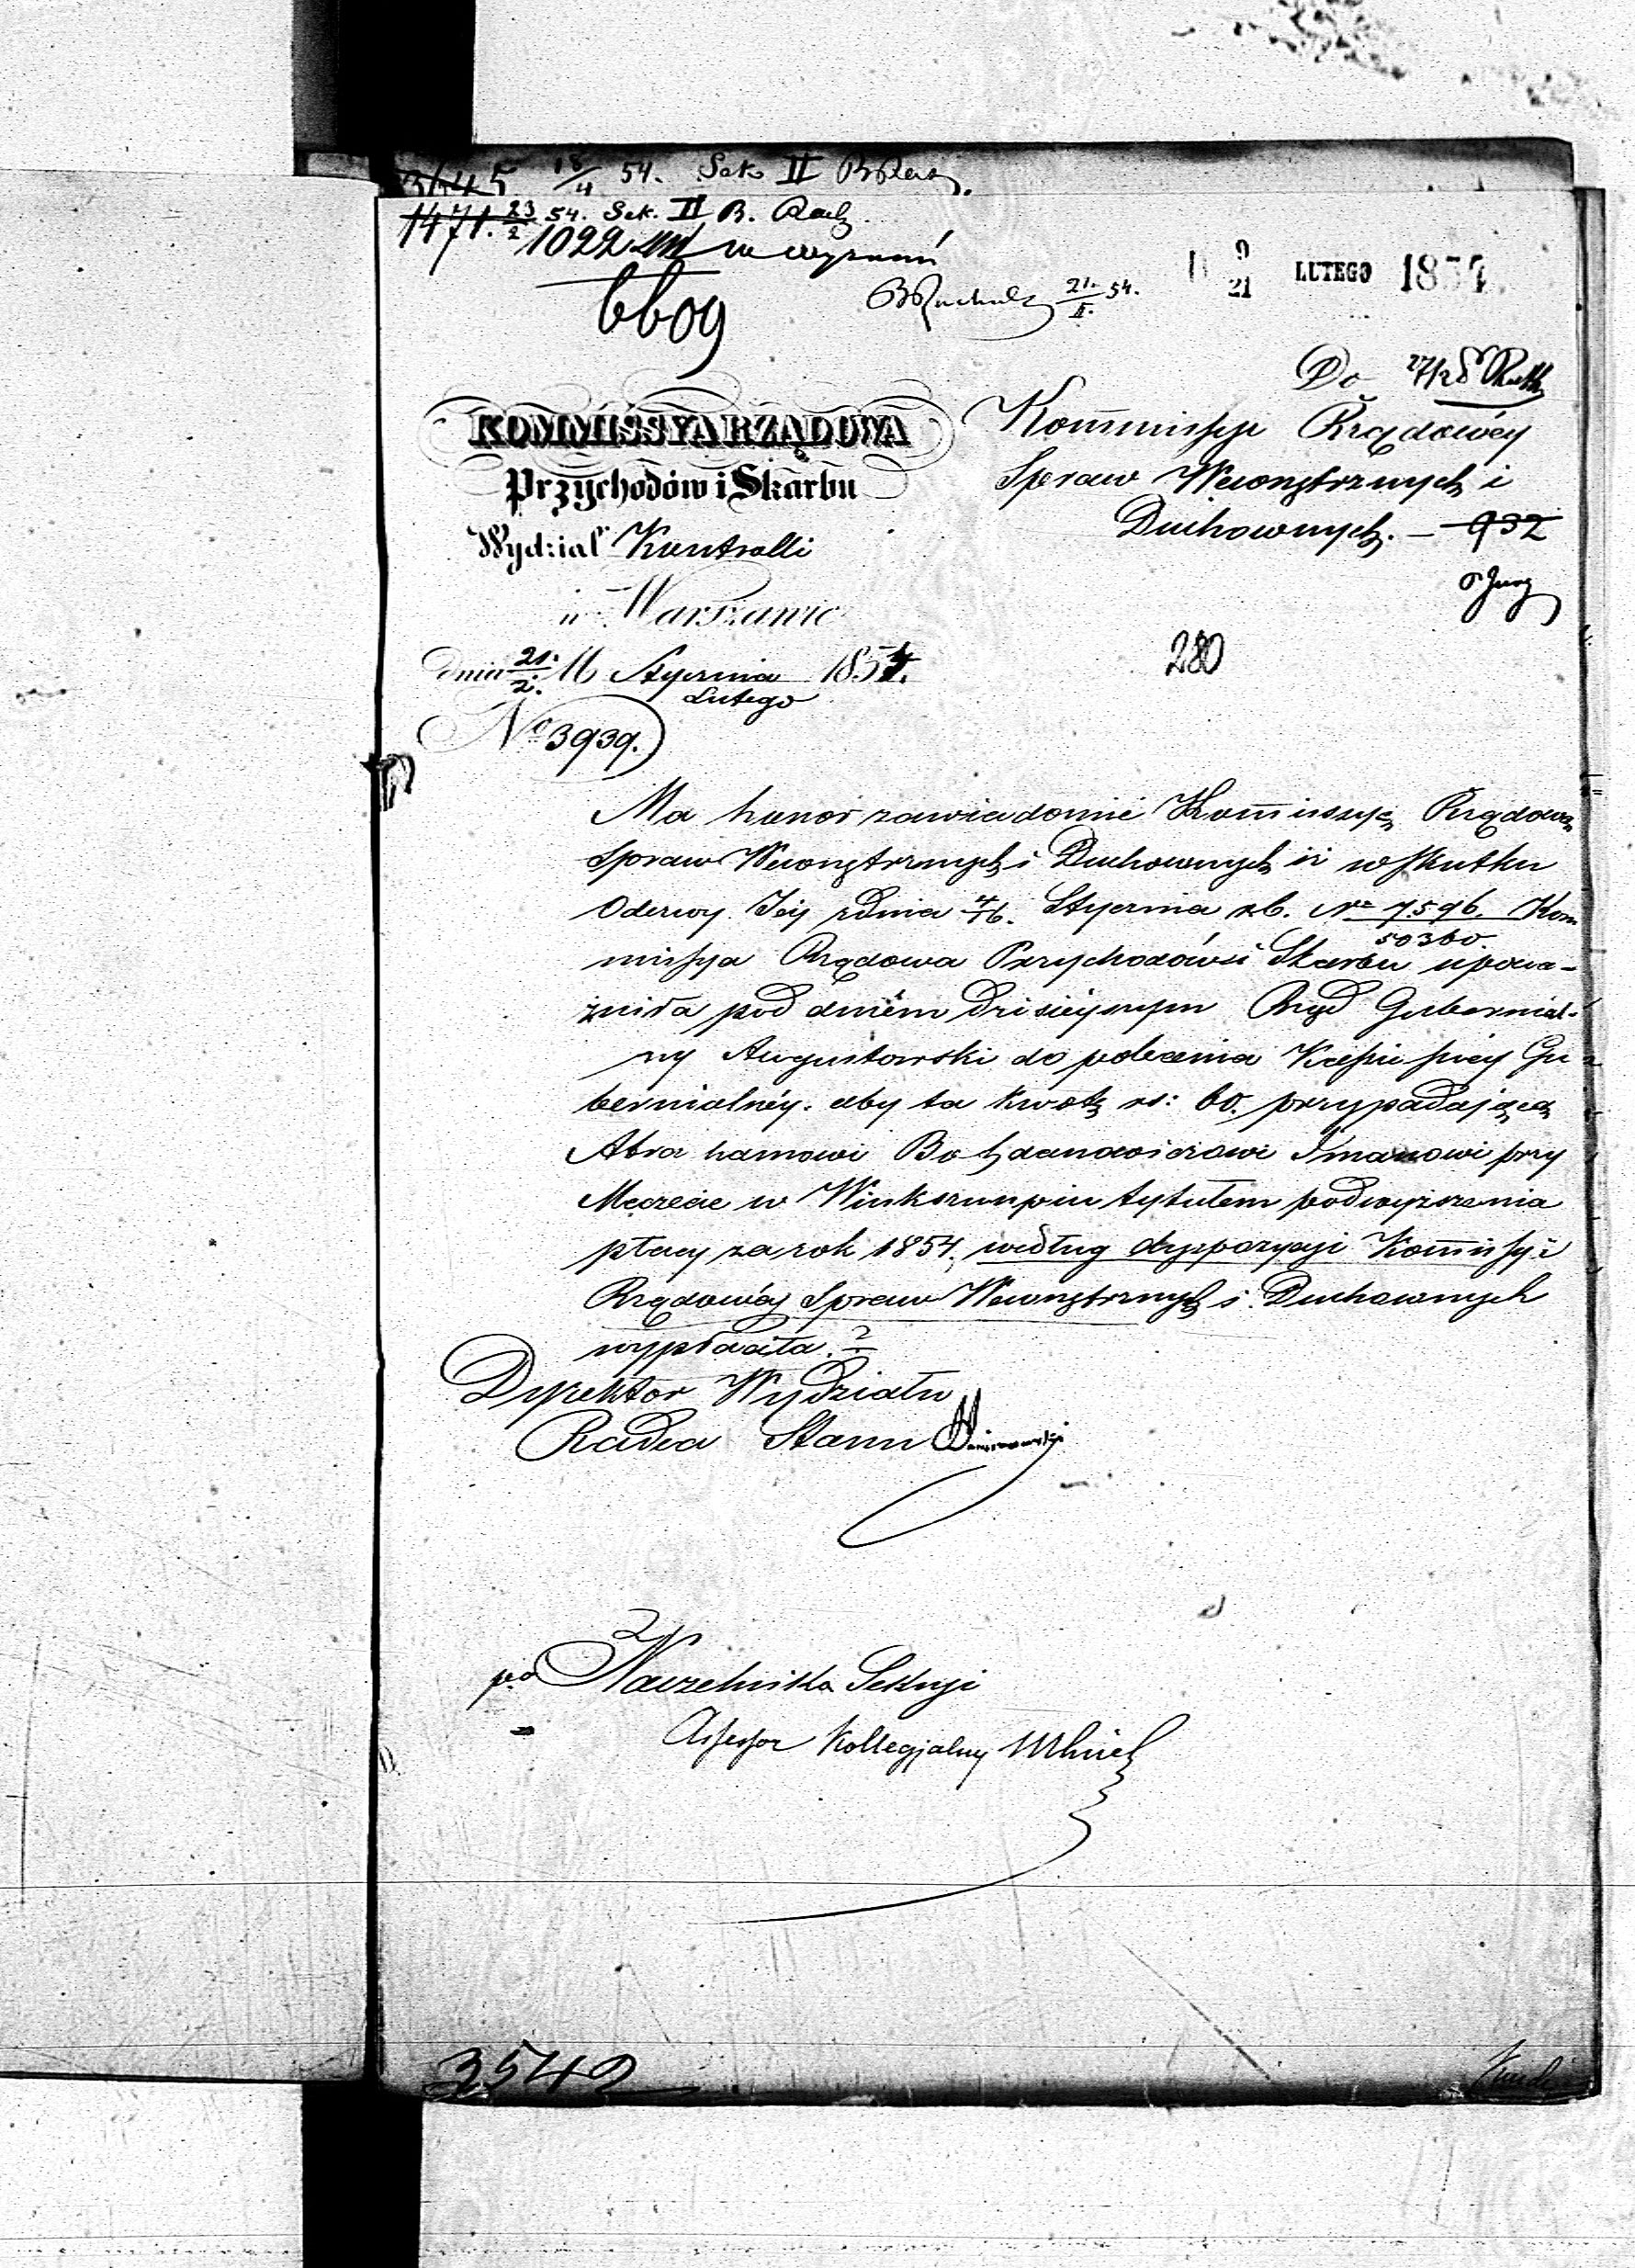 3645 18/4 54. Sek II
1471. 23/2 54. Sek. II B. Radz
1022
6609
21./II. 54.
9/21 LUTEGO 1854.
Do
KOMMISSYA RZĄDOWA
Przychodów i Skarbu
Wydział Kontrolli
w Warszawie
dnia 21./2. 16 Stycznia 1854.
Lutego
No 3939.
Kommissyi Rządowéy
Spraw Wewnętrznych i
Duchownych. — 932
280
Ma honor zawiadomić Kommissyę Rządową
Spraw Wewnętrznych i Duchownych iż w skutku
Odezwy Jéy z dnia 4/16. Stycznia r.b. No 7596./50360. Kom
missya Rządowa Przychodów i Skarbu upowa-
żniła pod dniem dzisieyszym Rząd Gubernial-
ny Augustowski do polecenia Kassie swey Gu
bernialnéy. aby ta kwotę rs: 60. przypadającą
Abrahamowi Bohdanowiczowi Imanowi przy
Meczecie w Winksznupiu tytułem podwyższenia
płacy za rok 1854, według dyspozycyi Kommissyi
Rządowéy Spraw Wewnętrznych i Duchownych
wypłaciła.
Dyrektor Wydziału
Radca Stanu
po Naczelnika Sekcyi
Assessor Kollegjalny
3542